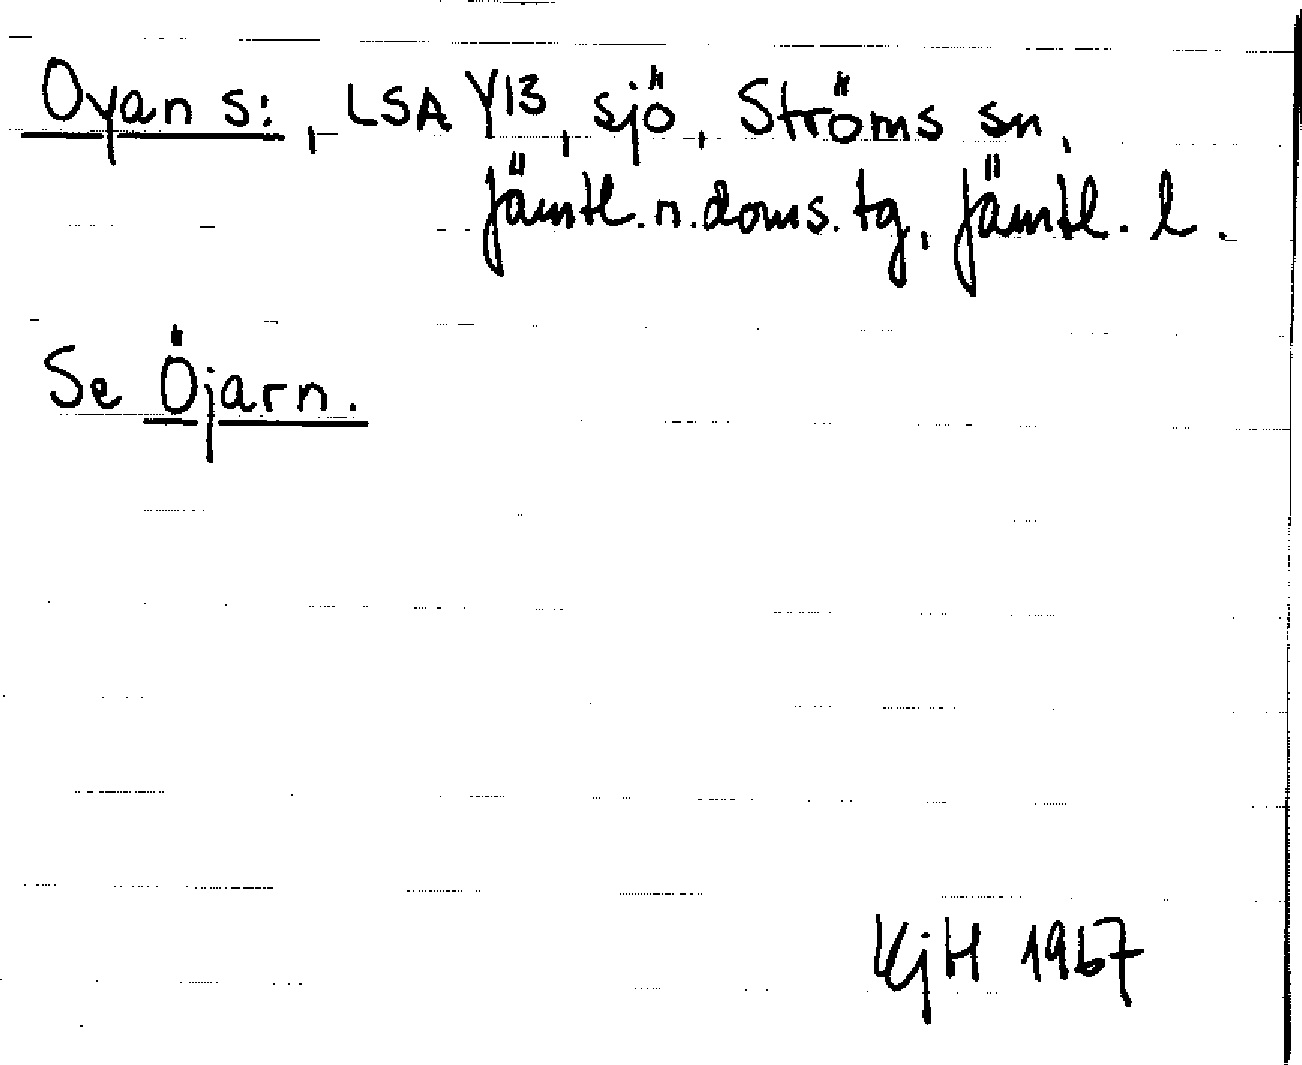 Oyan s:, LSA Y13, sjö, Ströms sn,
Jämtl. n. doms. tg, Jämtl. l.
Se Öjarn.
KjH 1967